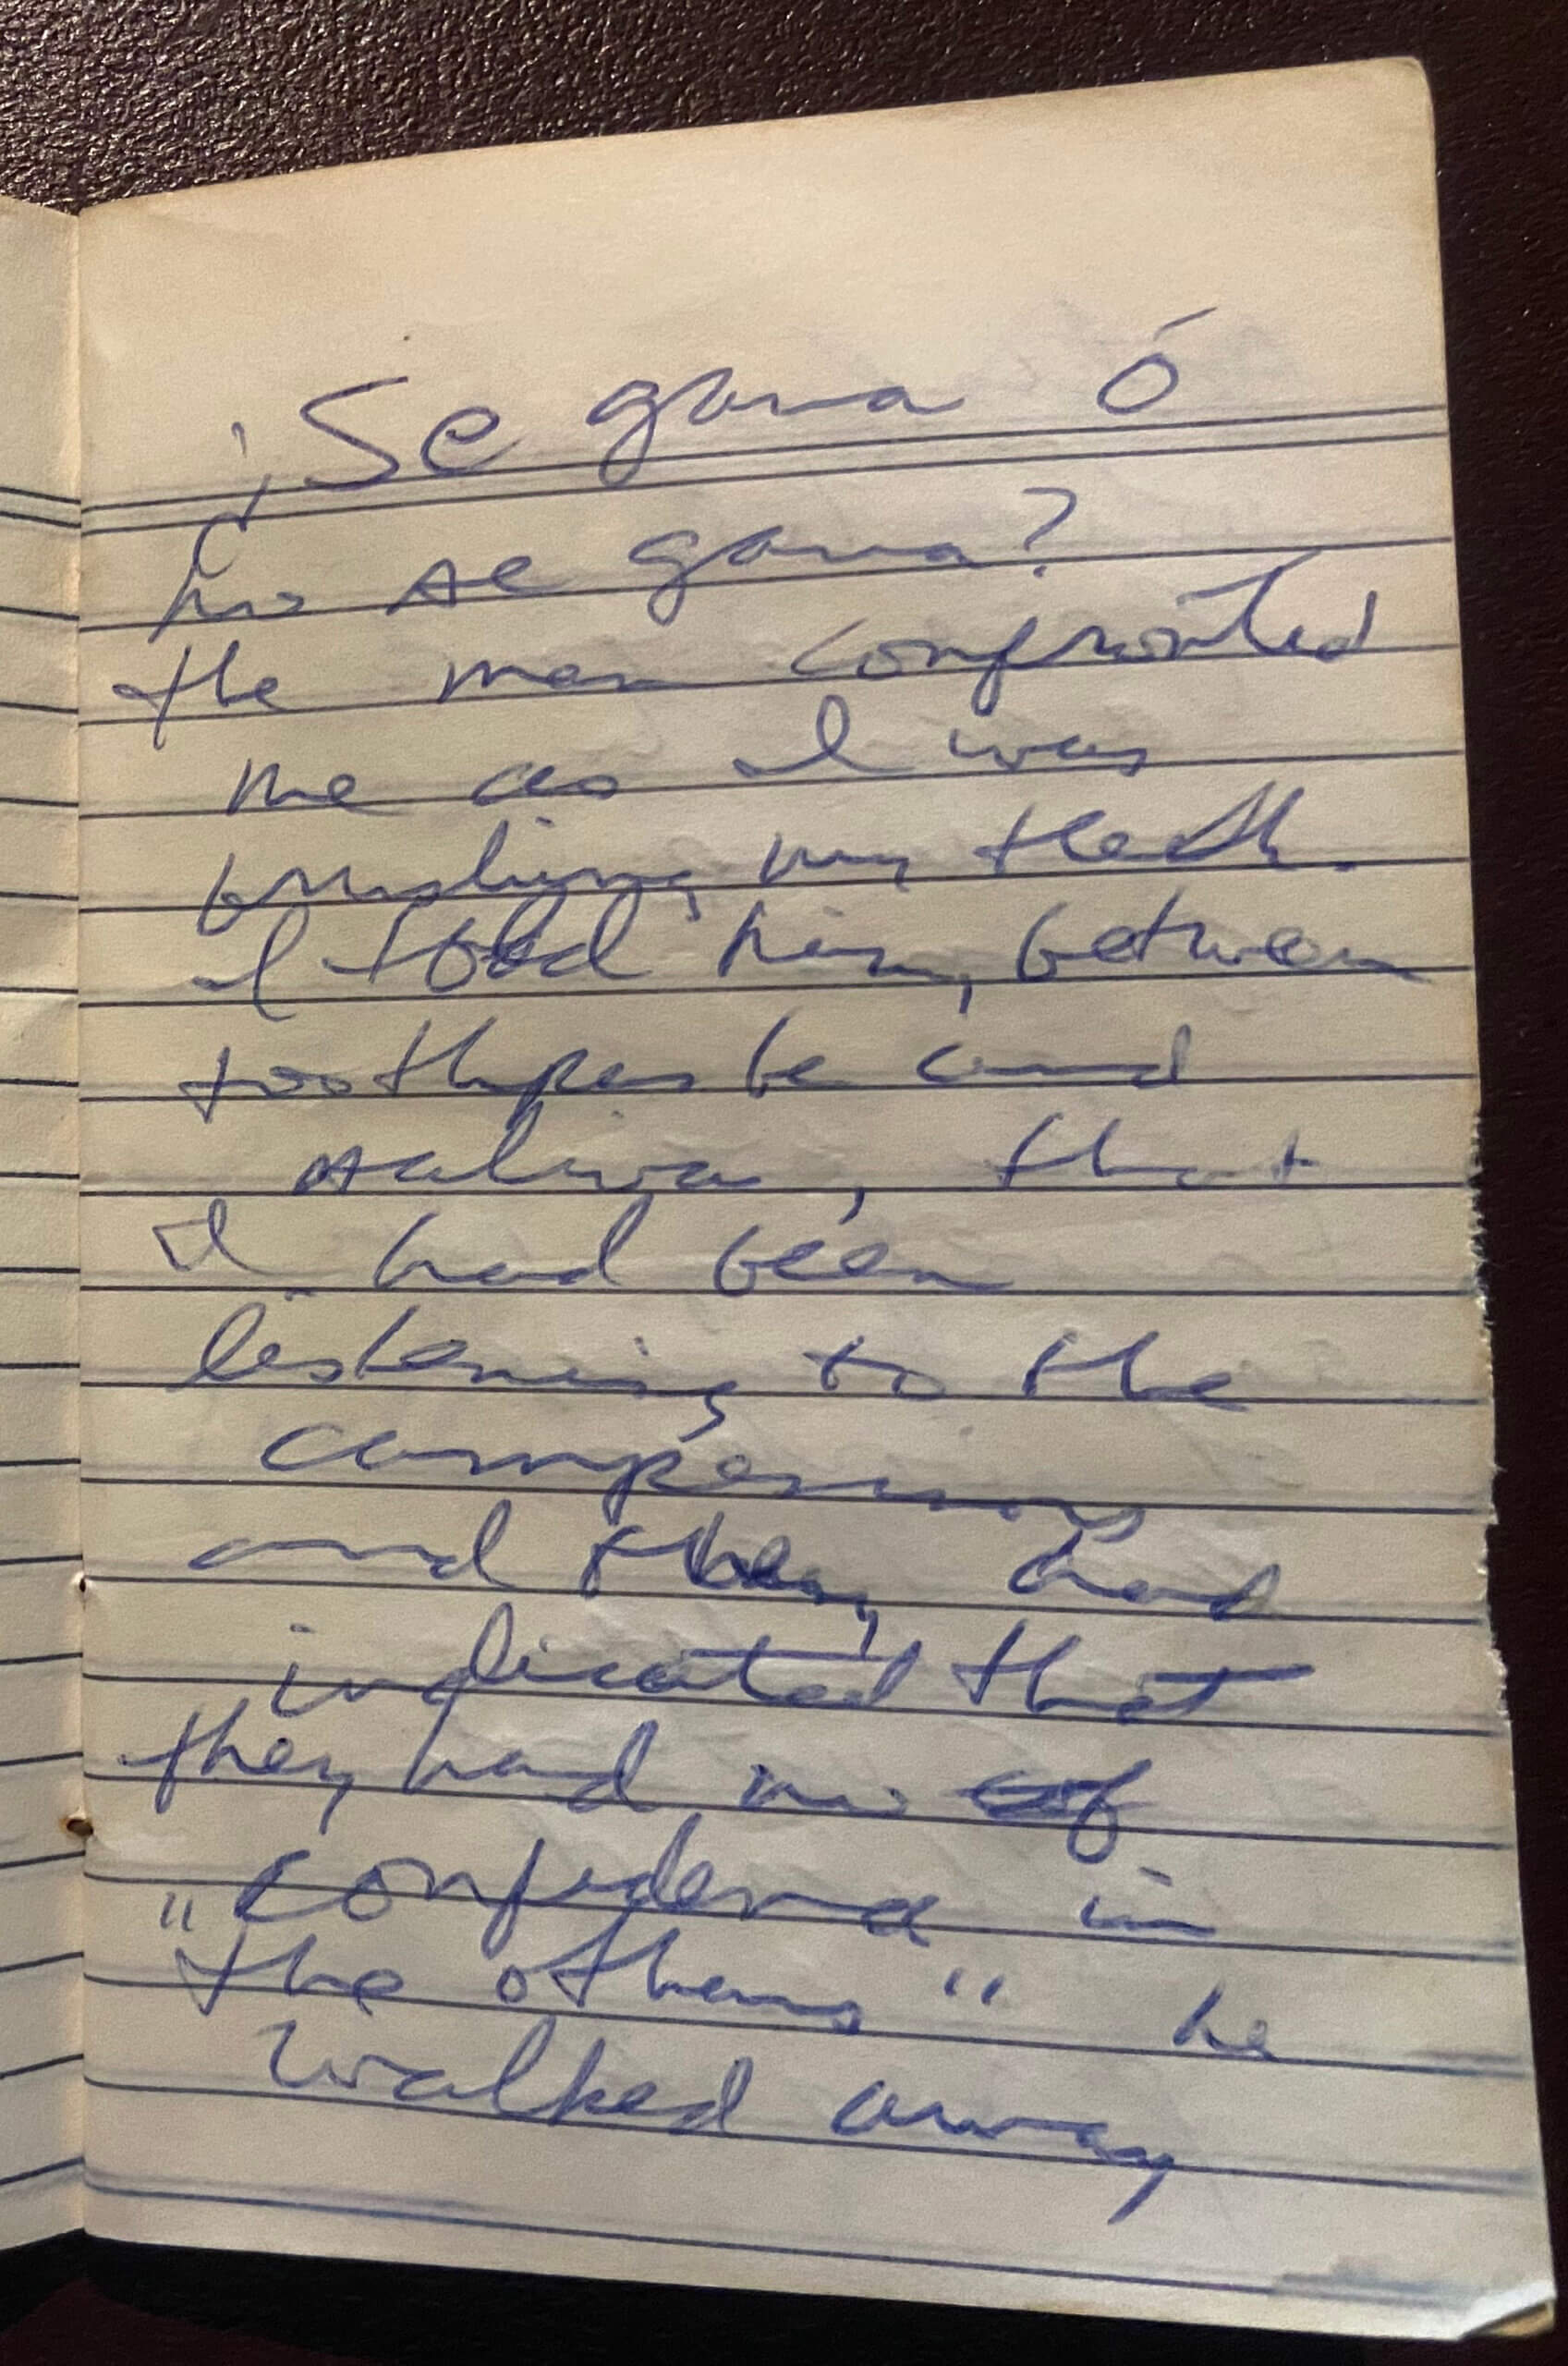 ¡Se gana ó
no se gana?
the man confronted
me as I was
brushing my theeth.
I told him, between
toothpaste and
saliva, that
I had been
listening to the
campesinos
and they had
indicated that
they had no of
"confidence in
the others" he
walked away